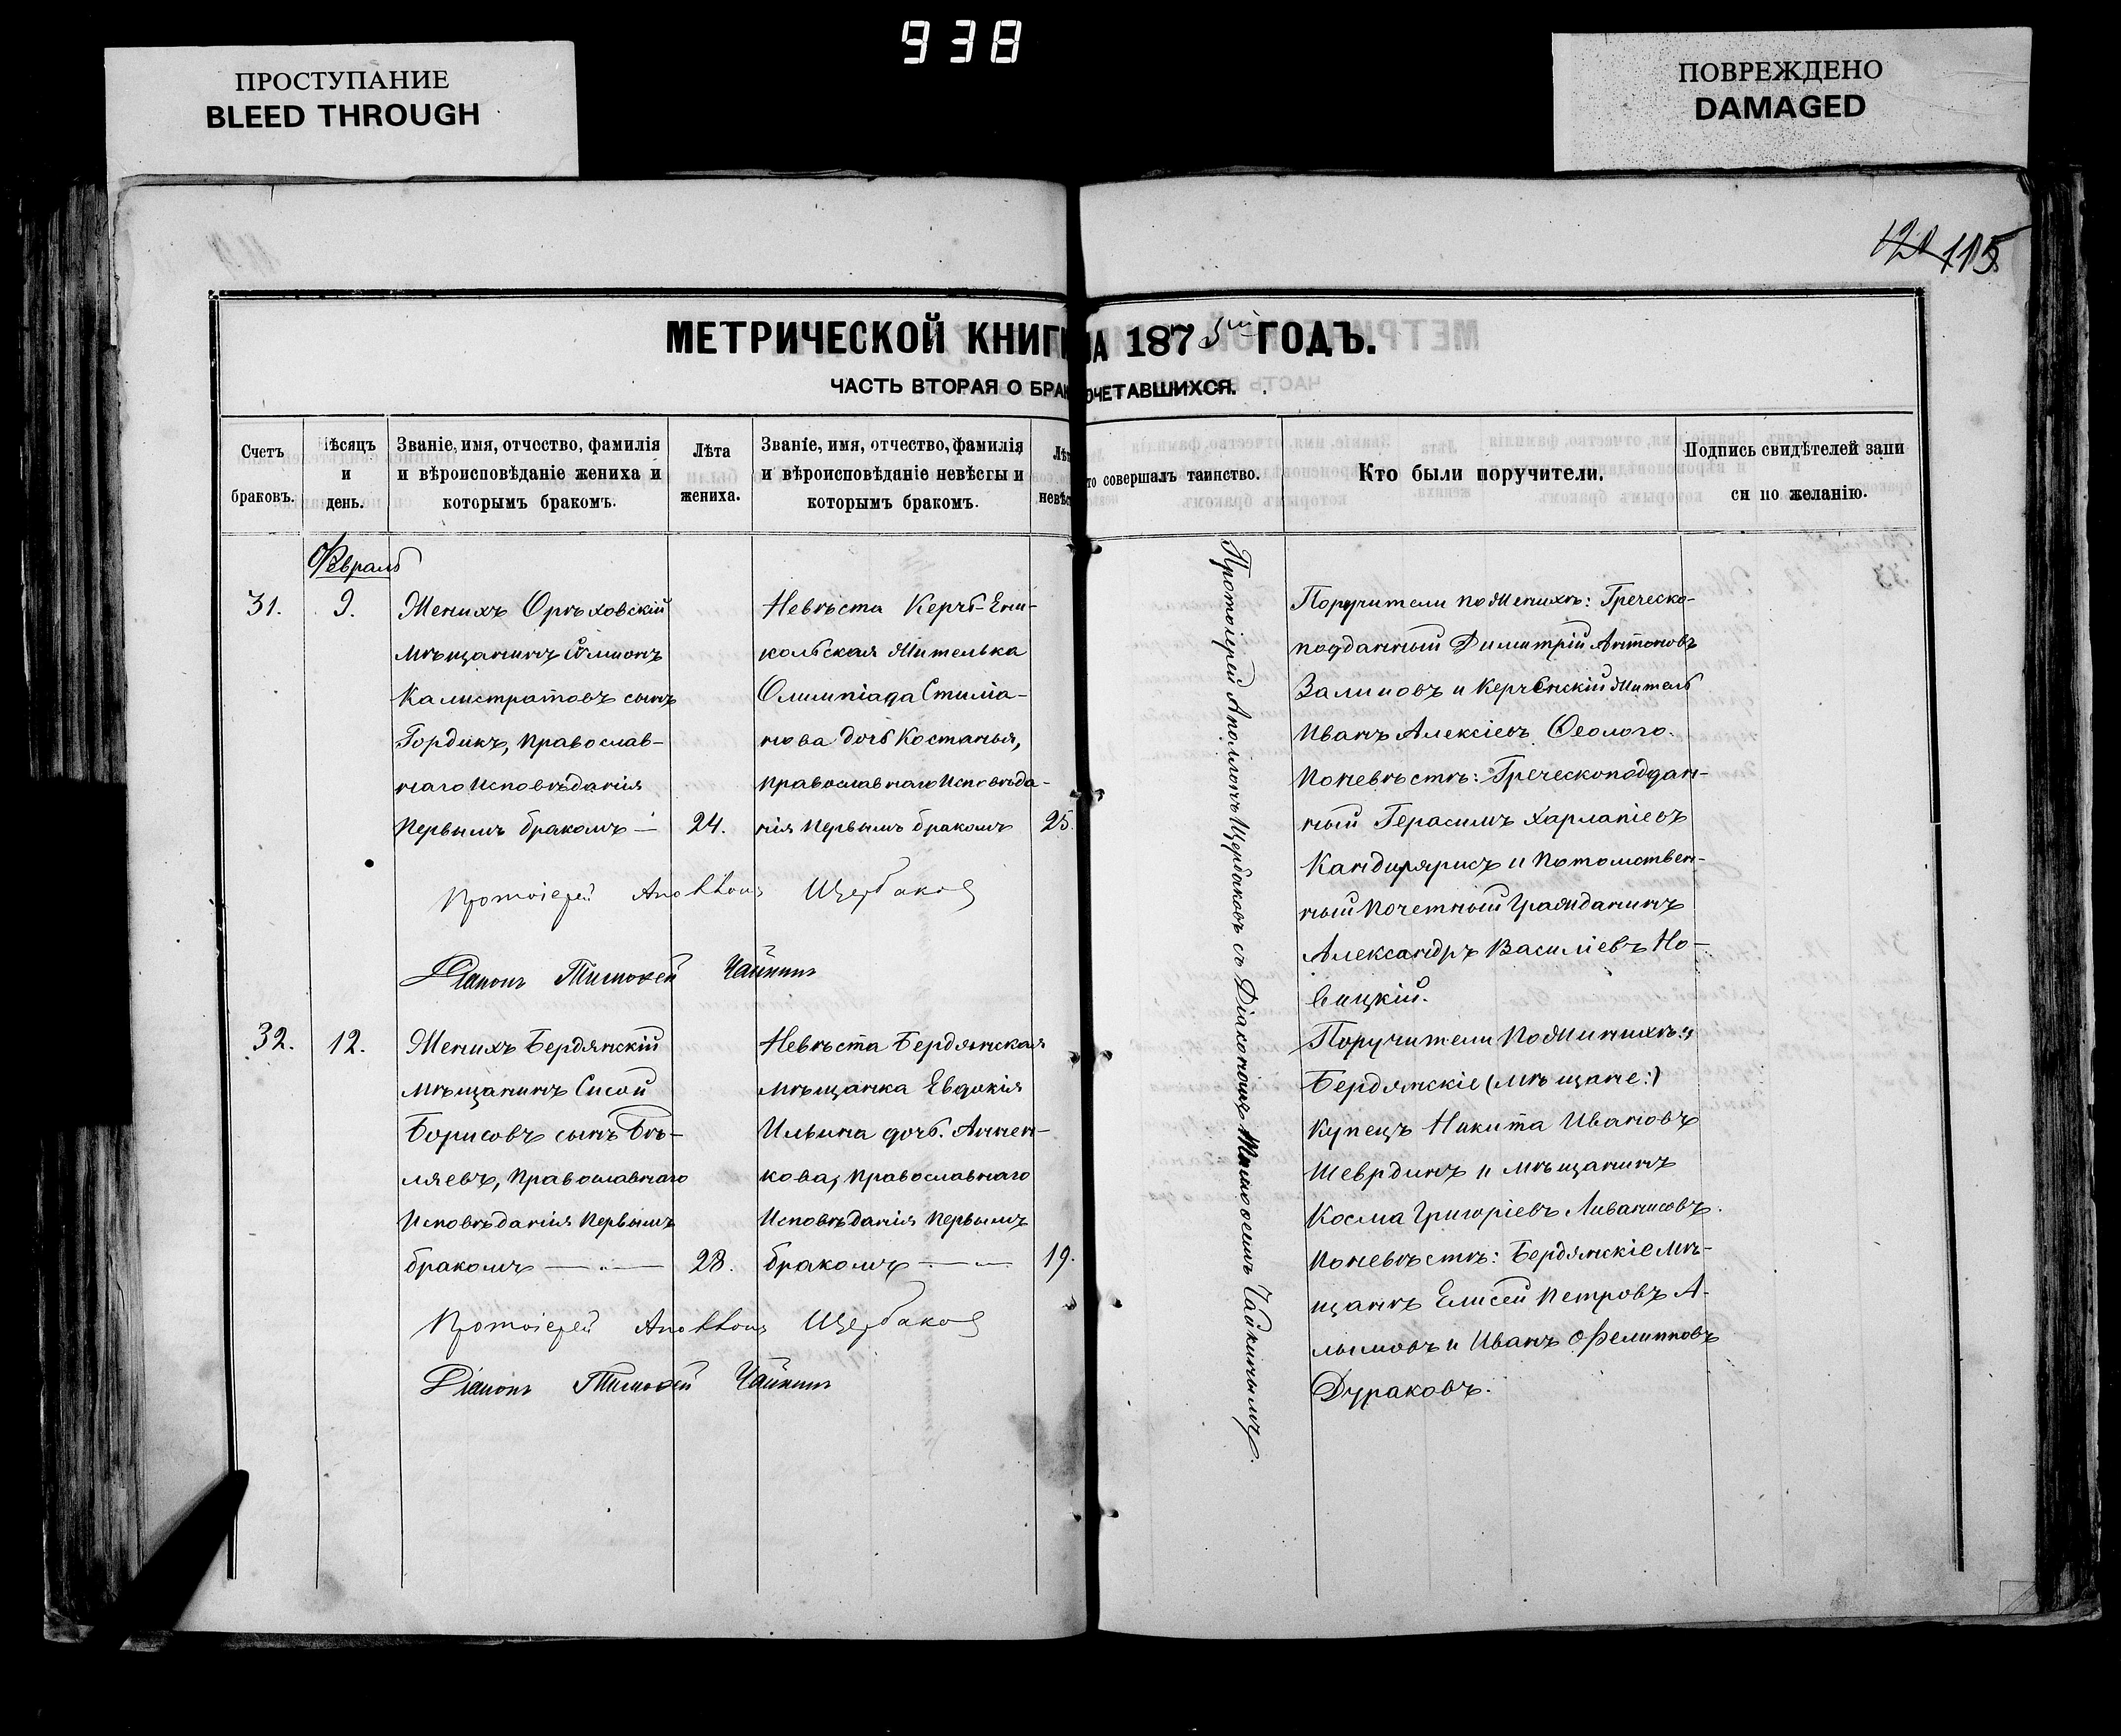 938
ПРОСТУПАНИЕ
BLEED THROUGH
ПОВРЕЖДЕНО
DAMAGED
115
МЕТРИЧЕСКОЙ КНИГИ НА 1875й ГОДЪ.
ЧАСТЬ ВТОРАЯ О БРАКОСОЧЕТАВШИХСЯ.
Счетъ
браковъ.
Мѣсяцъ
и
день.
Званіе, имя, отчество, фамилія
и вѣроисповѣданіе жениха и
которымъ бракомъ.
Лѣта
жениха.
Званіе, имя, отчество, фамилія
и вѣроисповѣданіе невѣсты и
которымъ бракомъ.
Лѣт
невѣс
то совершалъ таинство.
Кто были поручители.
Подпись свидѣтелей запи
си по желанію.
Февраль
31.
9.
Женихъ Орѣховскій
мѣщанинъ Симионъ
Калистратовъ сынъ
Гордикъ, Православ-
наго Исповѣданія
Первымъ бракомъ —
24.
Невѣста Керчь-Ени-
кольская Жителька
Олимпіада Стиліа-
нова дочь Костанья,
Православнаго Исповѣда-
нія Первымъ бракомъ
25.
Протоіерей Аполлонъ Щербаковъ
Діаконъ Тимофей Чайкинъ
Протоіерей Аполлонъ Щербаковъ съ Діакономъ Тимофеемъ Чайкинымъ.
Поручители по Женихѣ: Греческо-
подданный Димитрій Антоновъ
Валиновъ и Керченскій Житель
Иванъ Алексіевъ Феолого.
По невѣстѣ: Греческоподдан-
ный Герасимъ Харлапіевъ
Кандилярисъ и Потомствен-
ный Почетный Гражданинъ
Александръ Василіевъ Но-
вицкій.
32.
12.
Женихъ Бердянскій
мѣщанинъ Сисой
Борисовъ сынъ Бѣ-
ляевъ, Православнаго
Исповѣданія Первымъ
бракомъ — " —
28.
Невѣста Бердянская
мѣщанка Евдокія
Ильина дочь. Аннен-
кова, Православнаго
Исповѣданія Первымъ
бракомъ — " —
19.
Протоіерей Аполлонъ Щербаковъ
Діаконъ Тимофей Чайкинъ
Поручители По Женихѣ:
Бердянскіе (мѣщане:)
Купецъ Никита Ивановъ
Шевердинъ и мѣщанинъ
Косма Григоріевъ Ливанисовъ.
По невѣстѣ: Бердянскіе мѣ-
щанѣ Елисей Петровъ А-
лымовъ и Иванъ Филиповъ
Дураковъ.